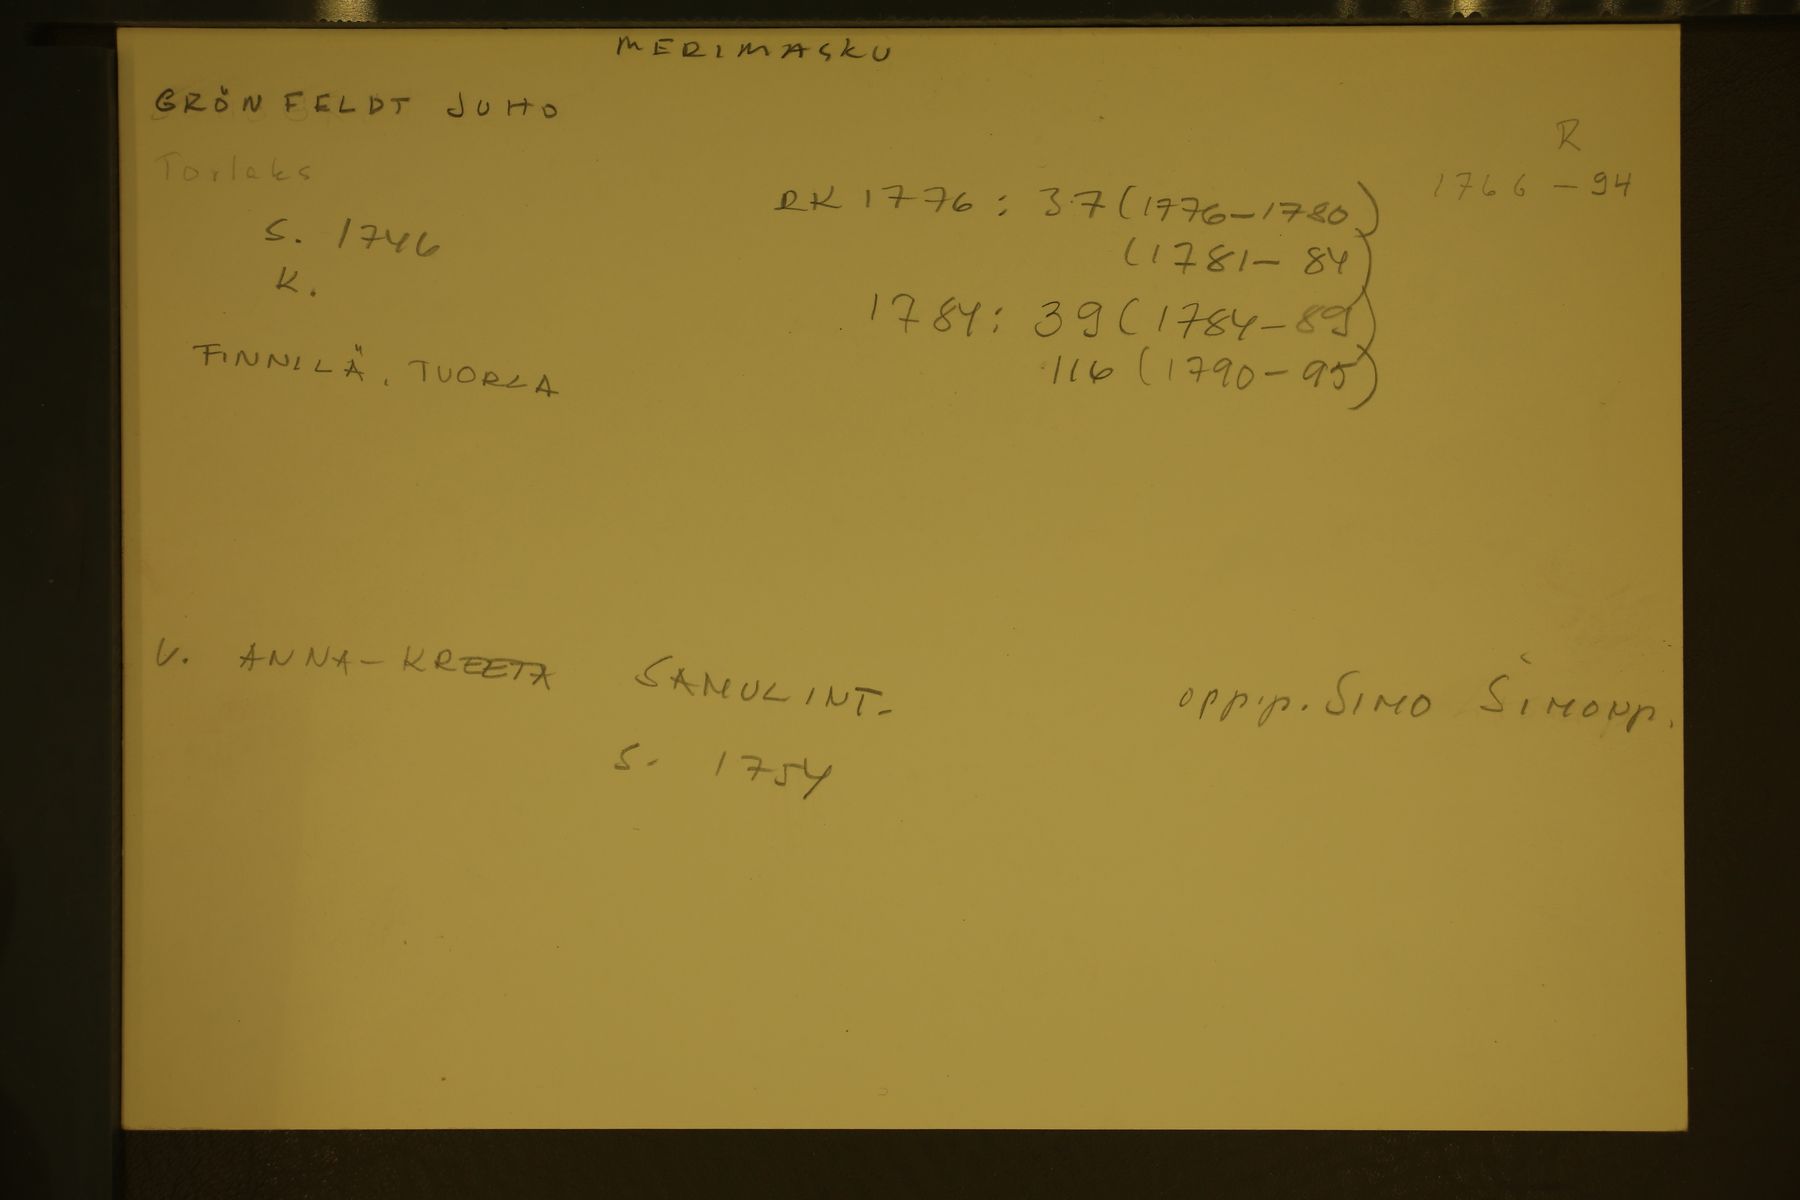 MERIMASKU
GRÖNFELDT JUHO
Torlaks
R
1766 - 94
S. 1746
K.
FINNILÄ, TUORLA
RK 1776: 37 (1776-1780)
(1781-84)
1784: 39 (1784-89)
116 (1790-95)
V. ANNA-KREETA SAMULINT.
S. 1754
oppip. SIMO SIMONP.